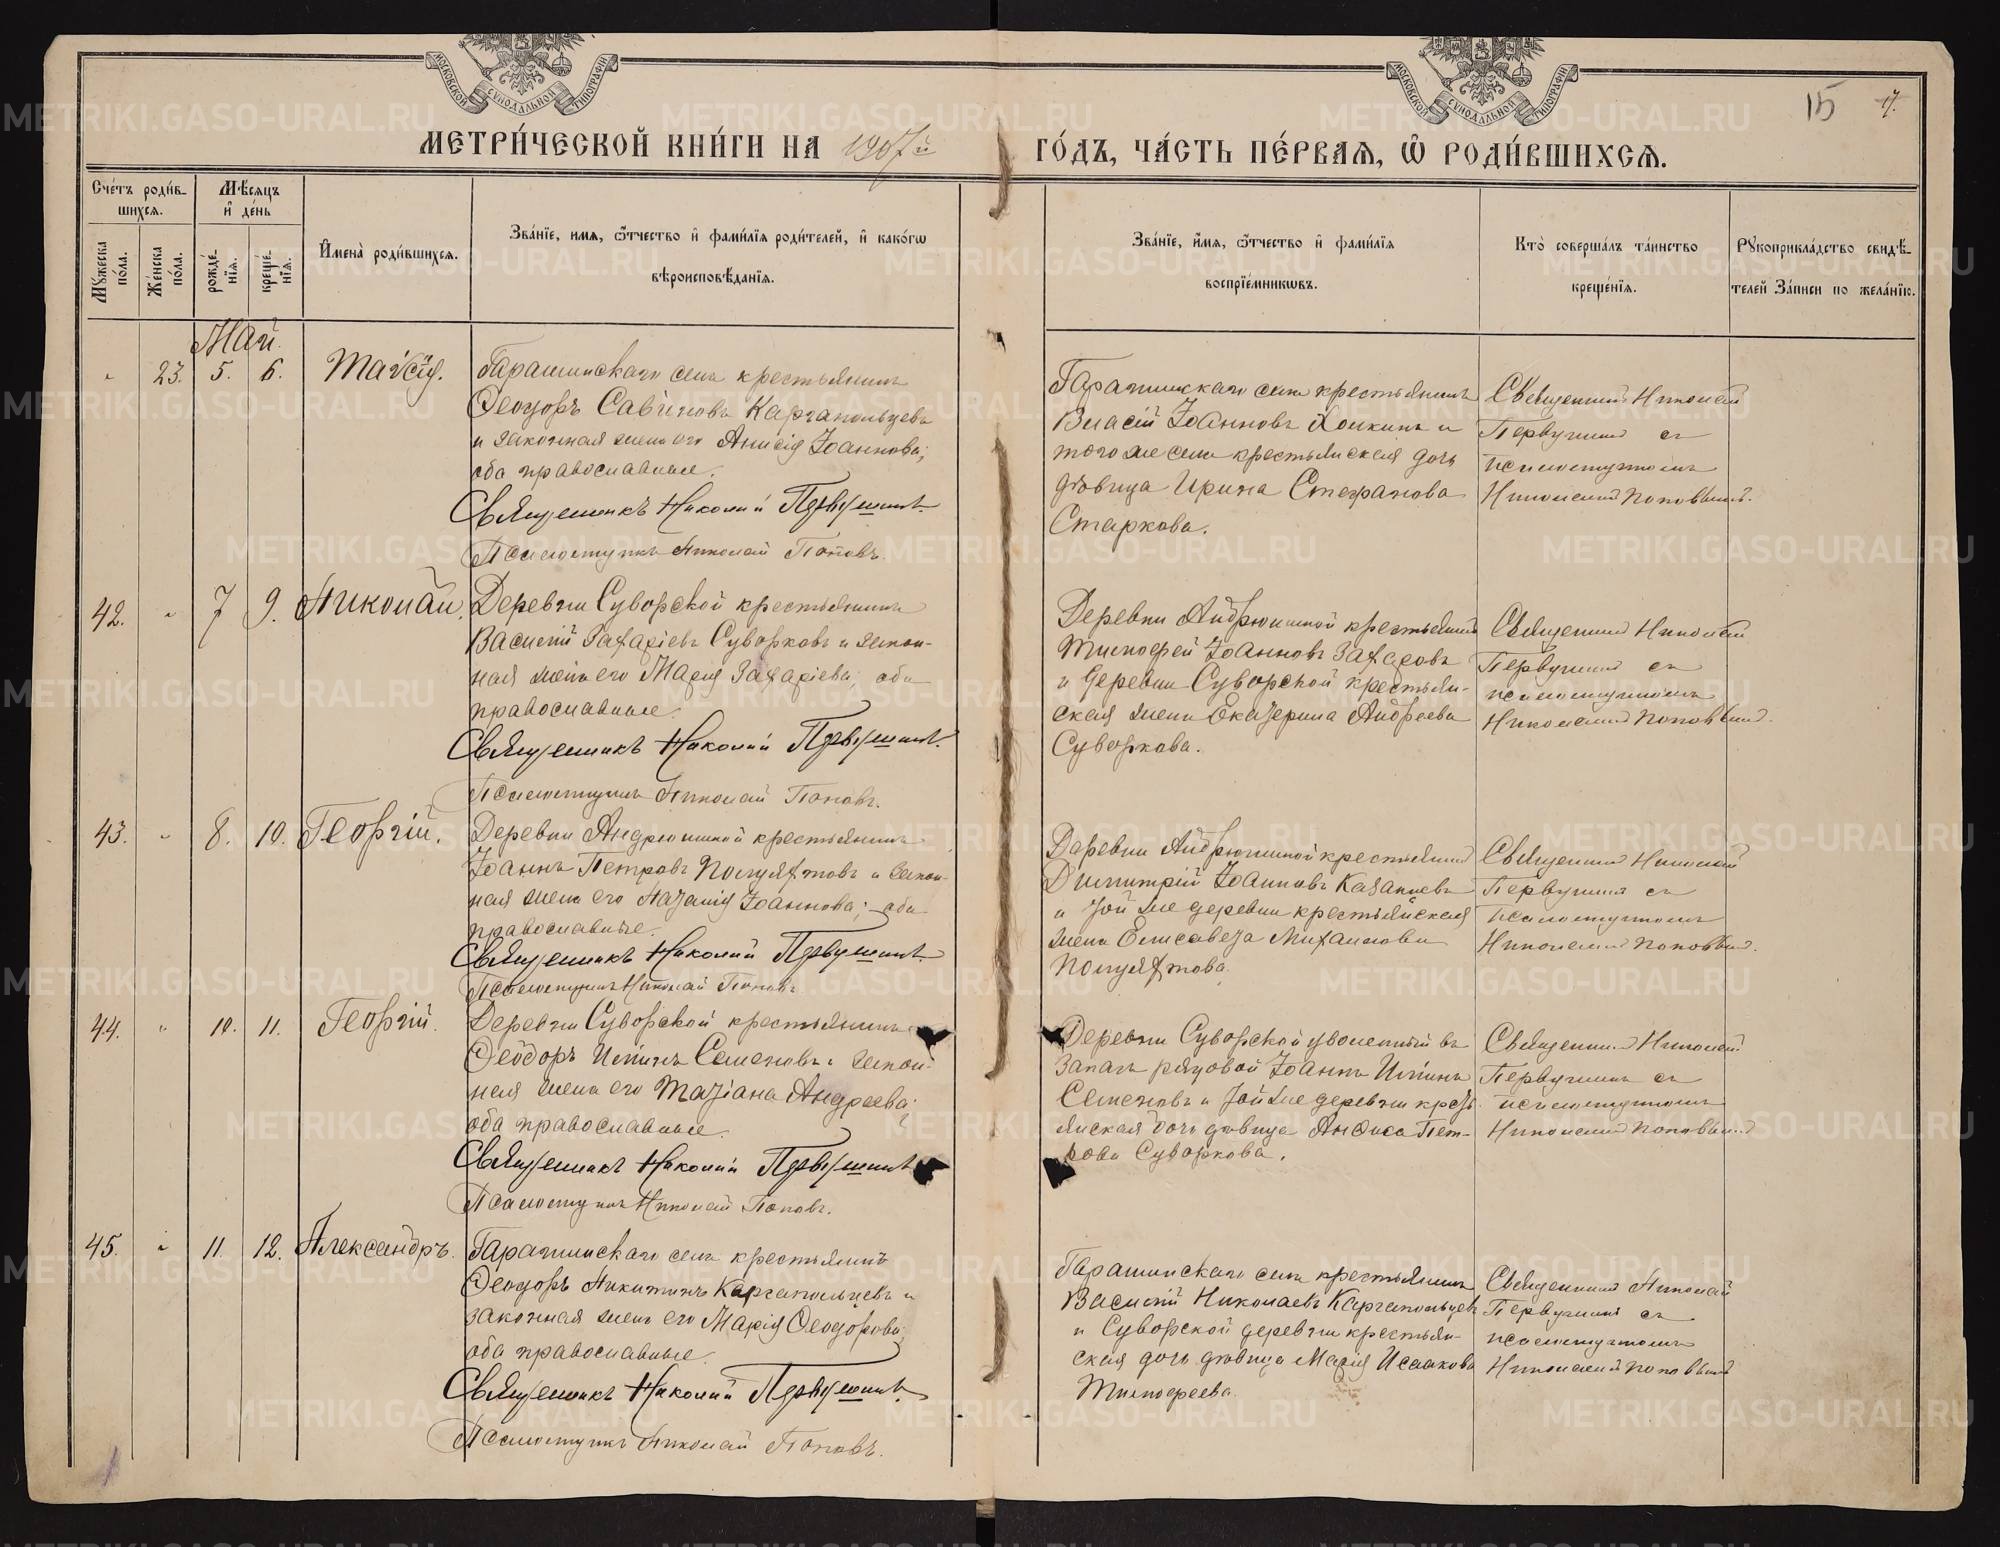 МОСКОВСКОЙ СѴНОДАЛЬНОЙ ТИПОГРАФІИ
МОСКОВСКОЙ СѴНОДАЛЬНОЙ ТИПОГРАФІИ
15
17.
МЕТРИ́ЧЕСКОЙ КНИ́ГИ НА 1907й ГО́ДЪ, ЧА́СТЬ ПЕ́РВАѦ, Ѡ РОДИ́ВШИХСѦ.
Сче́тъ роди́в-
шихсѧ.
Мѣ́сѧцъ
и҆ де́нь
Мꙋ́жеска
пола.
Же́нска
по́ла.
рожде́-
нїѧ.
креще́-
нїѧ.
И҆мена̀ роди́вшихсѧ.
Зва́нїе, имѧ, ѻ҆́тчество и҆ фами́лїѧ роди́телей, и҆ како́гѡ
вѣроисповѣ́данїѧ.
Зва́нїе, и҆́мѧ, ѻ҆́тчество и҆ фами́лїѧ
воспрїе́мникѡвъ.
Кто̀ соверша́лъ та́инство
креще́нїѧ.
Рꙋкоприкла́дство свидѣ́-
телей За́писи по жела́нїю.
Май.
23. 5. 6. Таисія.
Гарашинскаго села крестьянинъ
Ѳеодоръ Саввиновъ Каргапольцевъ
и законная жена его Анисія Іоаннова;
оба православные.
Священникъ Николай Первушинъ
Псаломщикъ Николай Поповъ.
Гарашинскаго села крестьянинъ
Власій Іоанновъ и
того же села крестьянская дочь
дѣвица Ирина Стефанова
Старкова.
Священникъ Николай
Первушинъ съ
псаломщикомъ
Николаемъ Поповымъ.
42. " 7 9. Николай.
Деревни Суворской крестьянинъ
Василій Захаріевъ Суворковъ и закон-
ная жена его Марія Захаріева; оба
православные.
Священникъ Николай Первушинъ.
Псаломщикъ Николай Поповъ.
Деревни Андрюшиной крестьянинъ
Тимофей Іоанновъ Захаровъ
и деревни Суворской крестьян-
ская жена Екатерина Андреева
Суворкова.
Священникъ Николай
Первушинъ съ
псаломщикомъ
Николаемъ Поповымъ.
43. " 8. 10. Георгій.
Деревни Андрюшиной крестьянинъ
Іоаннъ Петровъ Полуяхтовъ и закон-
ная жена его Наталія Іоаннова; оба
православные.
Священникъ Николай Первушинъ.
Псаломщикъ Николай Поповъ.
Деревни Андрюшиной крестьянинъ
Димитрій Іоанновъ Казанцевъ
и той же деревни крестьянская
жена Елисавета Михаилова
Полуяхтова.
Священникъ Николай
Первушинъ съ
псаломщикомъ
Николаемъ Поповымъ.
44. " 10. 11. Георгій.
Деревни Суворской крестьянинъ
Ѳеодоръ Ильинъ Семеновъ и закон-
ная жена его Татіана Андреева;
оба православные.
Священникъ Николай Первушинъ
Псаломщикъ Николай Поповъ.
Деревни Суворской уволенный въ
запасъ рядовой Іоаннъ Ильинъ
Семеновъ и той же деревни кресть-
янская дочь дѣвица Анфиса Пет-
рова Суворкова.
Священникъ Николай
Первушинъ съ
псаломщикомъ
Николаемъ Поповымъ
45. " 11. 12. Александръ.
Гарашинскаго села крестьянинъ
Ѳеодоръ Никитинъ Каргапольцевъ и
законная жена его Марія Ѳеодорова;
оба православные.
Священникъ Николай Первушинъ.
Псаломщикъ Николай Поповъ.
Гарашинскаго села крестьянинъ
Василій Николаевъ Каргапольцевъ
и Суворской деревни крестьян-
ская дочь дѣвица Марія Исаакова
Тимофеева.
Священникъ Николай
Первушинъ съ
псаломщикомъ
Николаемъ Поповымъ
METRIKI.GASO-URAL.RU